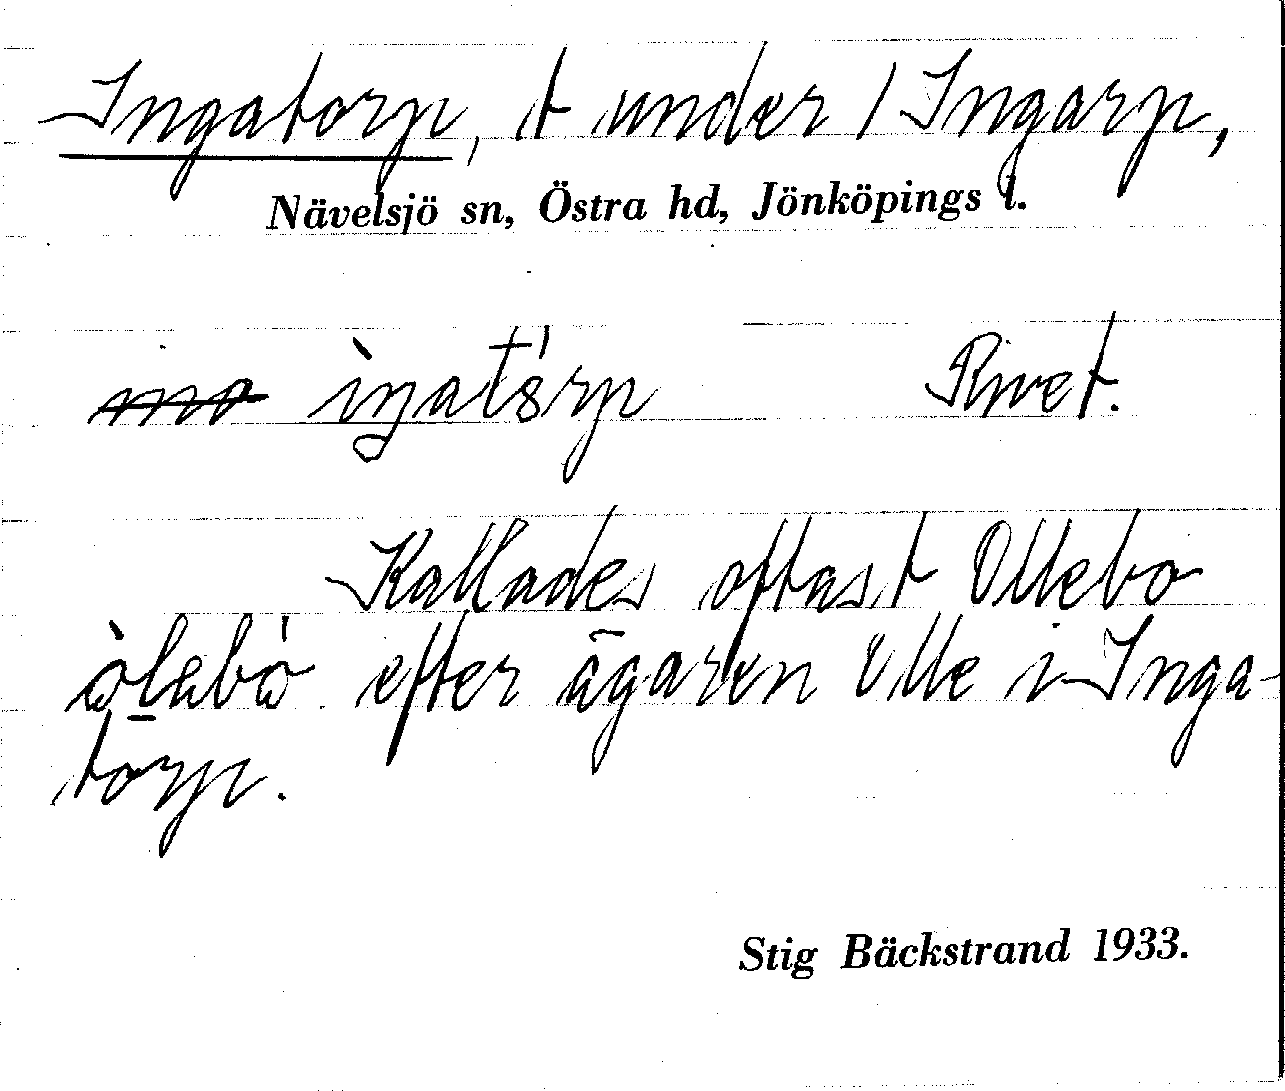 Ingatorp, t under 1 Ingarp,
Nävelsjö sn, Östra hd, Jönköpings l.
Rivet.
Kallades oftast Ollebo
efter ägaren Olle i Inga-
torp.
Stig Bäckstrand 1933.